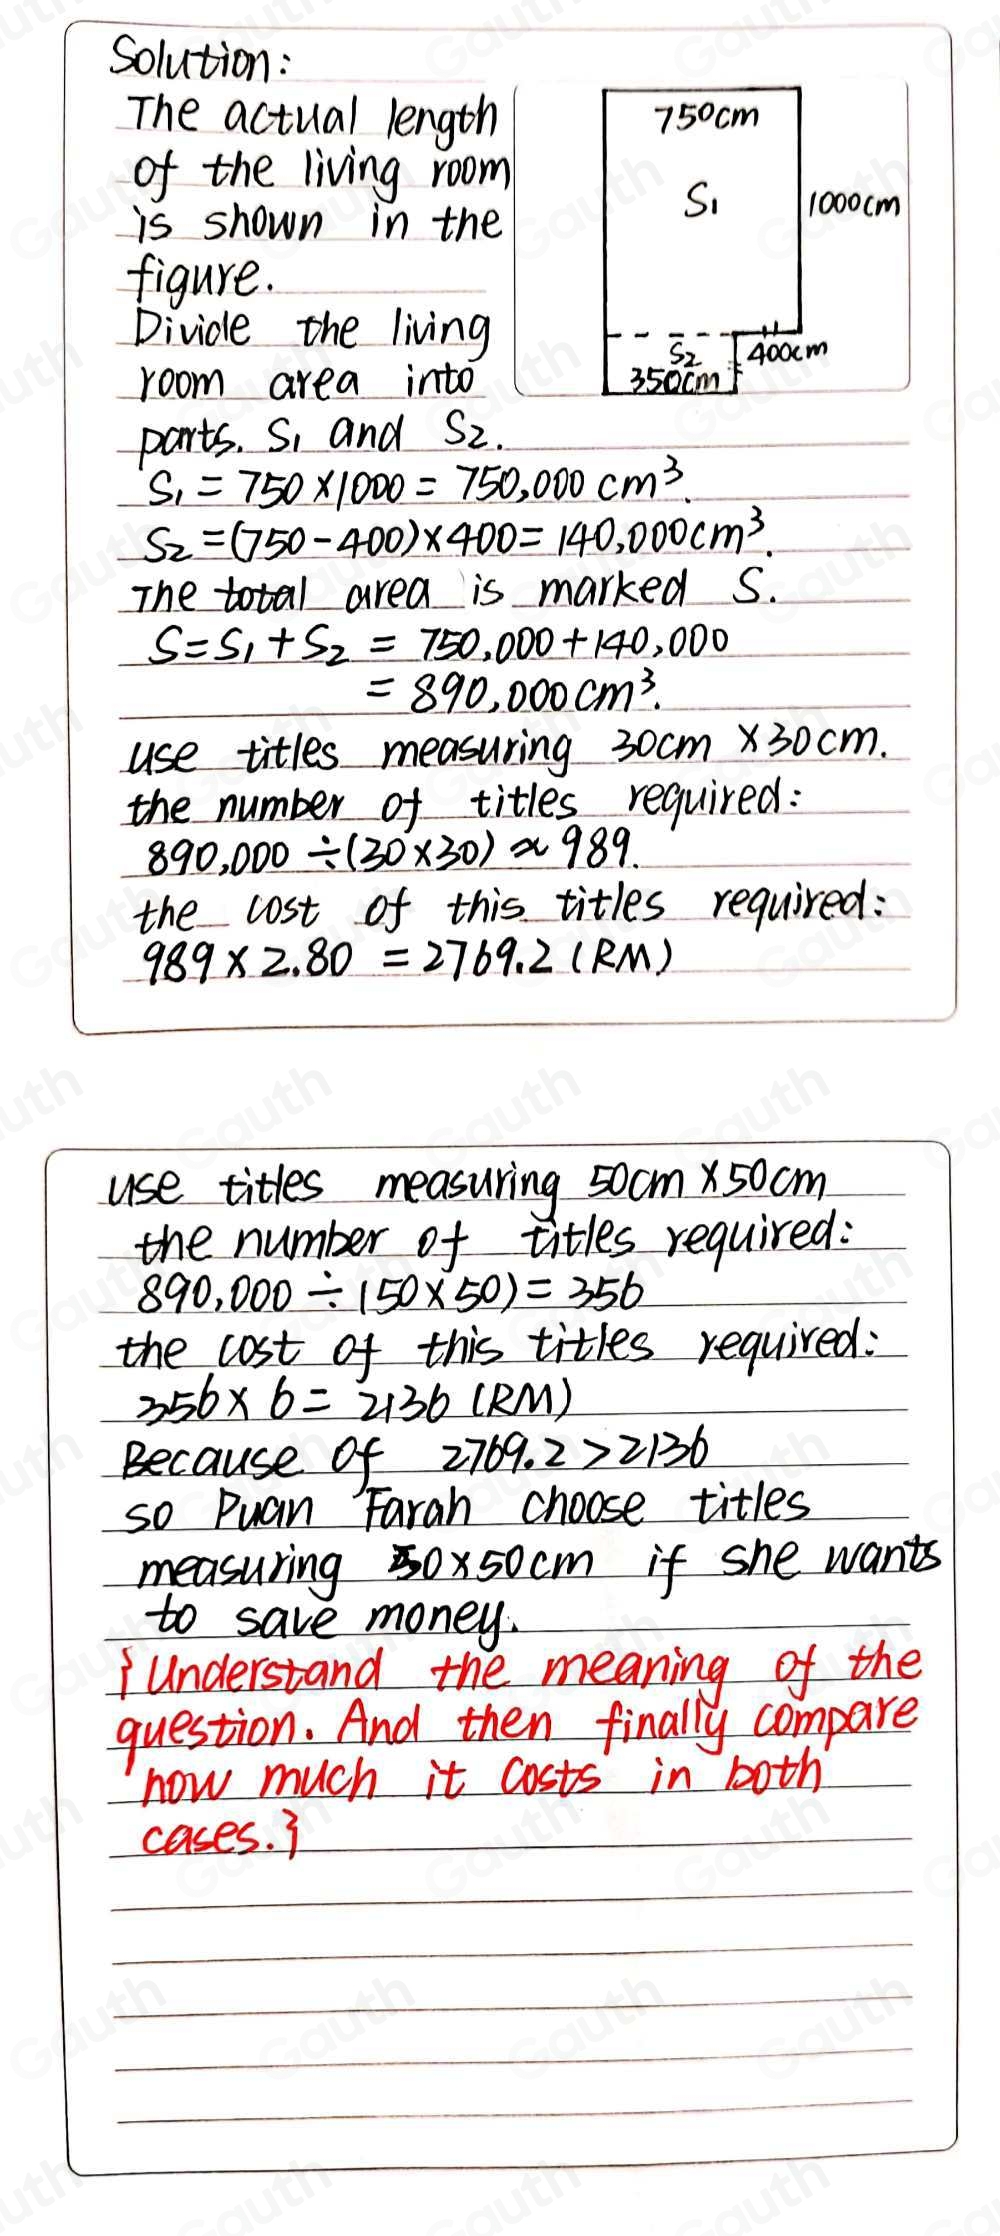 Solution:
The actual length
of the living room
is shown in the
figure.
Divide the living
room area into
parts. S₁ and S₂.
750cm
S₁
1000cm
S₂
400cm
350cm
S₁ = 750 × 1000 = 750,000 cm³.
S₂ = (750 - 400) × 400 = 140,000cm³.
The total area is marked S.
S = S₁ + S₂ = 750,000 + 140,000
= 890,000 cm³.
use titles measuring 30cm × 30cm.
the number of titles required:
890,000 ÷ (30 × 30) ≈ 989.
the cost of this titles required:
989 × 2.80 = 2769.2 (RM)
use titles measuring 50cm × 50cm
the number of titles required:
890,000 ÷ (50 × 50) = 356
the cost of this titles required:
356 × 6 = 2136 (RM)
Because of 2769.2 > 2136
so Puan Farah choose titles
measuring 50 × 50cm if she wants
to save money.
{Understand the meaning of the
question. And then finally compare
how much it costs in both
cases.}